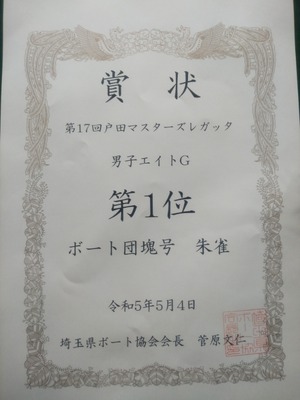 賞状
第17回戸田マスターズレガッタ
男子エイトG
第1位
ボート団塊号 朱雀
令和5年5月4日
埼玉県ボート協会会長 菅原文仁